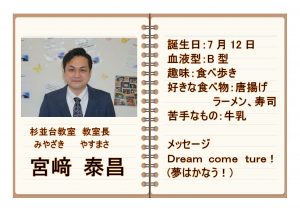 杉並台教室 教室長
みやざき やすまさ
宮﨑 泰昌
誕生日:7月12日
血液型:B型
趣味:食べ歩き
好きな食べ物:唐揚げ
ラーメン、寿司
苦手なもの:牛乳
メッセージ
Dream come ture!
(夢はかなう!)